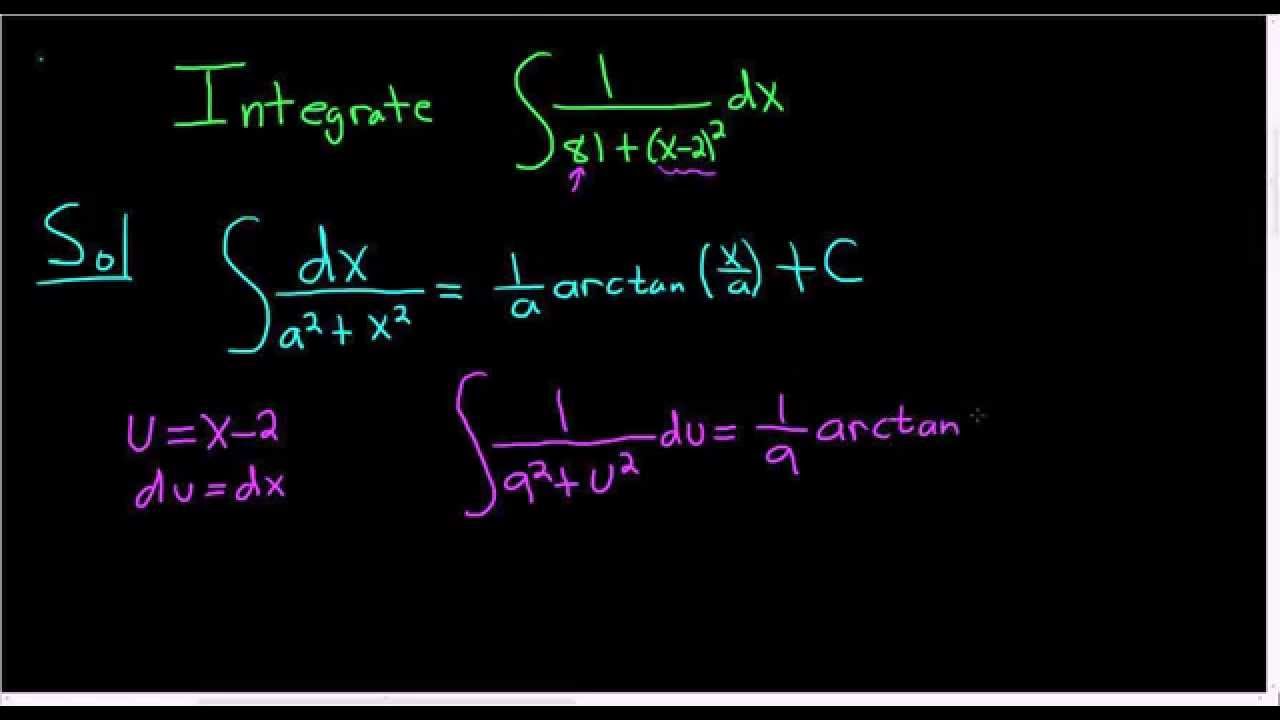 Integrate ∫ 1/(81+(x-2)²) dx
Sol ∫ dx/(a²+x²) = 1/a arctan(x/a) + C
u=x-2
du=dx
∫ 1/(9²+u²) du = 1/9 arctan